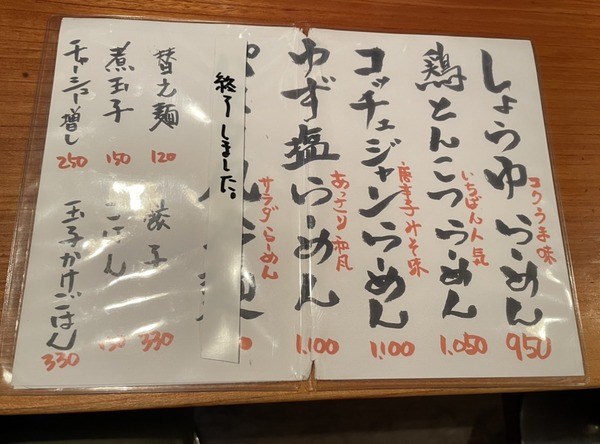 しょうゆらーめん
コクうま味
950
鶏とんこつらーめん
いちばん人気
1.050
コッチュジャンらーめん
唐辛子みそ味
1.100
ゆず塩らーめん
あっさり和風
1.100
サラダらーめん
終了しました。
替え麺
120
煮玉子
150
チャーシュー増し
250
餃子
330
ごはん
玉子かけごはん
330